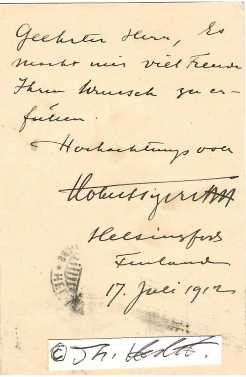 Geehrter Herr, Es
macht mir viel Freude
Ihren Wunsch zu er-
füllen.
Hochachtungsvoll
Helsingfors
Finland
17. Juli 1912
©